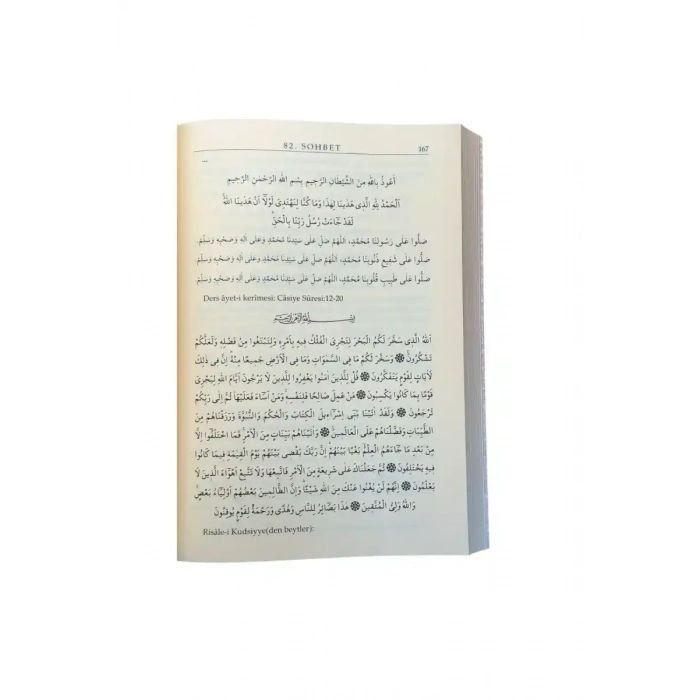 82. SOHBET 167
...
اَعُوذُ بِاللّٰهِ مِنَ الشَّيْطَانِ الرَّجِيمِ بِسْمِ اللّٰهِ الرَّحْمٰنِ الرَّحِيمِ
اَلْحَمْدُ لِلّٰهِ الَّذِى هَدٰينَا لِهٰذَا وَمَا كُنَّا لِنَهْتَدِىَ لَوْلَآ اَنْ هَدٰينَا اللّٰهُ
لَقَدْ جَآءَتْ رُسُلُ رَبِّنَا بِالْحَقِّ
صَلُّوا عَلٰى رَسُولِنَا مُحَمَّدٍ، اَللّٰهُمَّ صَلِّ عَلٰى سَيِّدِنَا مُحَمَّدٍ وَعَلٰى اٰلِهِ وَصَحْبِهِ وَسَلِّمْ
صَلُّوا عَلٰى شَفِيعِ ذُنُوبِنَا مُحَمَّدٍ، اَللّٰهُمَّ صَلِّ عَلٰى سَيِّدِنَا مُحَمَّدٍ وَعَلٰى اٰلِهِ وَصَحْبِهِ وَسَلِّمْ
صَلُّوا عَلٰى طَبِيبِ قُلُوبِنَا مُحَمَّدٍ، اَللّٰهُمَّ صَلِّ عَلٰى سَيِّدِنَا مُحَمَّدٍ وَعَلٰى اٰلِهِ وَصَحْبِهِ وَسَلِّمْ.
Ders âyet-i kerîmesi: Câsiye Sûresi:12-20
بِسْمِ اللّٰهِ الرَّحْمٰنِ الرَّحِيمِ
اَللّٰهُ الَّذِى سَخَّرَ لَكُمُ الْبَحْرَ لِتَجْرِىَ الْفُلْكُ فِيهِ بِاَمْرِهِ وَلِتَبْتَغُوا مِنْ فَضْلِهِ وَلَعَلَّكُمْ
تَشْكُرُونَ ۞ وَسَخَّرَ لَكُمْ مَا فِى السَّمٰوَاتِ وَمَا فِى الْاَرْضِ جَمِيعًا مِنْهُ اِنَّ فِى ذٰلِكَ
لَاٰيَاتٍ لِقَوْمٍ يَتَفَكَّرُونَ ۞ قُلْ لِلَّذِينَ اٰمَنُوا يَغْفِرُوا لِلَّذِينَ لَا يَرْجُونَ اَيَّامَ اللّٰهِ لِيَجْزِىَ
قَوْمًا بِمَا كَانُوا يَكْسِبُونَ ۞ مَنْ عَمِلَ صَالِحًا فَلِنَفْسِهِ وَمَنْ اَسَآءَ فَعَلَيْهَا ثُمَّ اِلٰى رَبِّكُمْ
تُرْجَعُونَ ۞ وَلَقَدْ اٰتَيْنَا بَنِى اِسْرَآءِيلَ الْكِتَابَ وَالْحُكْمَ وَالنُّبُوَّةَ وَرَزَقْنَاهُمْ مِنَ
الطَّيِّبَاتِ وَفَضَّلْنَاهُمْ عَلَى الْعَالَمِينَ ۞ وَاٰتَيْنَاهُمْ بَيِّنَاتٍ مِنَ الْاَمْرِ فَمَا اخْتَلَفُوا اِلَّا
مِنْ بَعْدِ مَا جَآءَهُمُ الْعِلْمُ بَغْيًا بَيْنَهُمْ اِنَّ رَبَّكَ يَقْضِى بَيْنَهُمْ يَوْمَ الْقِيٰمَةِ فِيمَا كَانُوا
فِيهِ يَخْتَلِفُونَ ۞ ثُمَّ جَعَلْنَاكَ عَلٰى شَرِيعَةٍ مِنَ الْاَمْرِ فَاتَّبِعْهَا وَلَا تَتَّبِعْ اَهْوَآءَ الَّذِينَ لَا
يَعْلَمُونَ ۞ اِنَّهُمْ لَنْ يُغْنُوا عَنْكَ مِنَ اللّٰهِ شَيْئًا وَاِنَّ الظَّالِمِينَ بَعْضُهُمْ اَوْلِيَآءُ بَعْضٍ
وَاللّٰهُ وَلِىُّ الْمُتَّقِينَ ۞ هٰذَا بَصَآئِرُ لِلنَّاسِ وَهُدًى وَرَحْمَةٌ لِقَوْمٍ يُوقِنُونَ
Risâle-i Kudsiyye(den beytler):